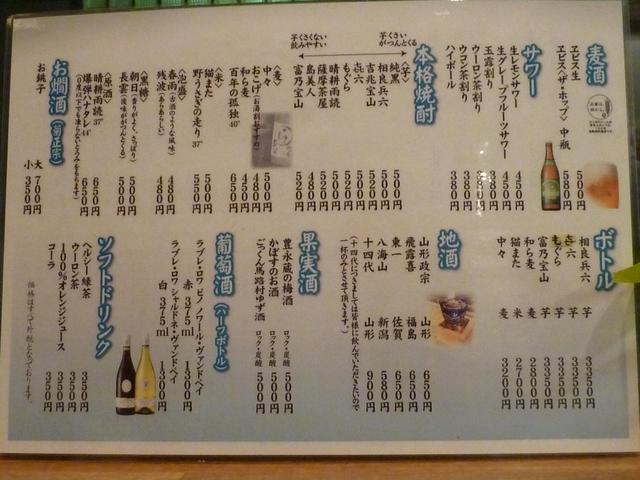 麦酒
ヱビス生 500円
ヱビス〈ザ・ホップ〉 中瓶 580円
サワー
生レモンサワー 450円
生グレープフルーツサワー 450円
玉露割り 380円
ウーロン茶割り 380円
ウコン茶割り 380円
ハイボール 380円
本格焼酎
芋くさい
がつんとくる
芋くさくない
飲みやすい
〈芋〉
純黒 500円
相良兵六 500円
吉兆宝山 520円
㐂六 520円
もぐら 520円
晴耕雨読 500円
薩摩茶屋 500円
島美人 480円
富乃宝山 520円
〈麦〉
中々 500円
おこげ(お湯割おすすめ) 480円
和ら麦 450円
百年の孤独 40° 650円
〈米〉
猫また 500円
野うさぎの走り 37° 550円
〈泡盛〉
春雨(古酒のような風味) 480円
残波(あらあらしい) 480円
〈黒糖〉
朝日(香りがよく、さっぱり) 500円
長雲(後味ががつんとくる) 500円
〈原酒〉
晴耕雨読 37° 650円
爆弾ハナタレ 44° 650円
お燗酒(菊正宗)
お銚子
大 700円
小 350円
ボトル
相良兵六 芋 3350円
㐂六 芋 3350円
もぐら 芋 3350円
富乃宝山 芋 3350円
和ら麦 麦 2800円
猫また 米 2700円
中々 麦 3200円
地酒
山形政宗 山形 650円
飛露喜 福島 650円
東一 佐賀 650円
八海山 新潟 580円
十四代 山形 900円
(十四代につきましては皆様に飲んでいただきたいので
一杯のみとさせて頂きます。)
果実酒
豊永蔵の梅酒 ロック・炭酸 500円
かぼすのお酒 ロック・炭酸 500円
ごっくん馬路村ゆず酒 ロック・炭酸 500円
葡萄酒(ハーフボトル)
ラブレ・ロワ ピノ ノワール・ヴァンドペイ
赤 375ml 1300円
ラブレ・ロワ シャルドネ・ヴァンドペイ
白 375ml 1300円
ソフトドリンク
ヘルシー緑茶 350円
ウーロン茶 350円
100%オレンジジュース 350円
コーラ 350円
価格はすべて外税となっております。